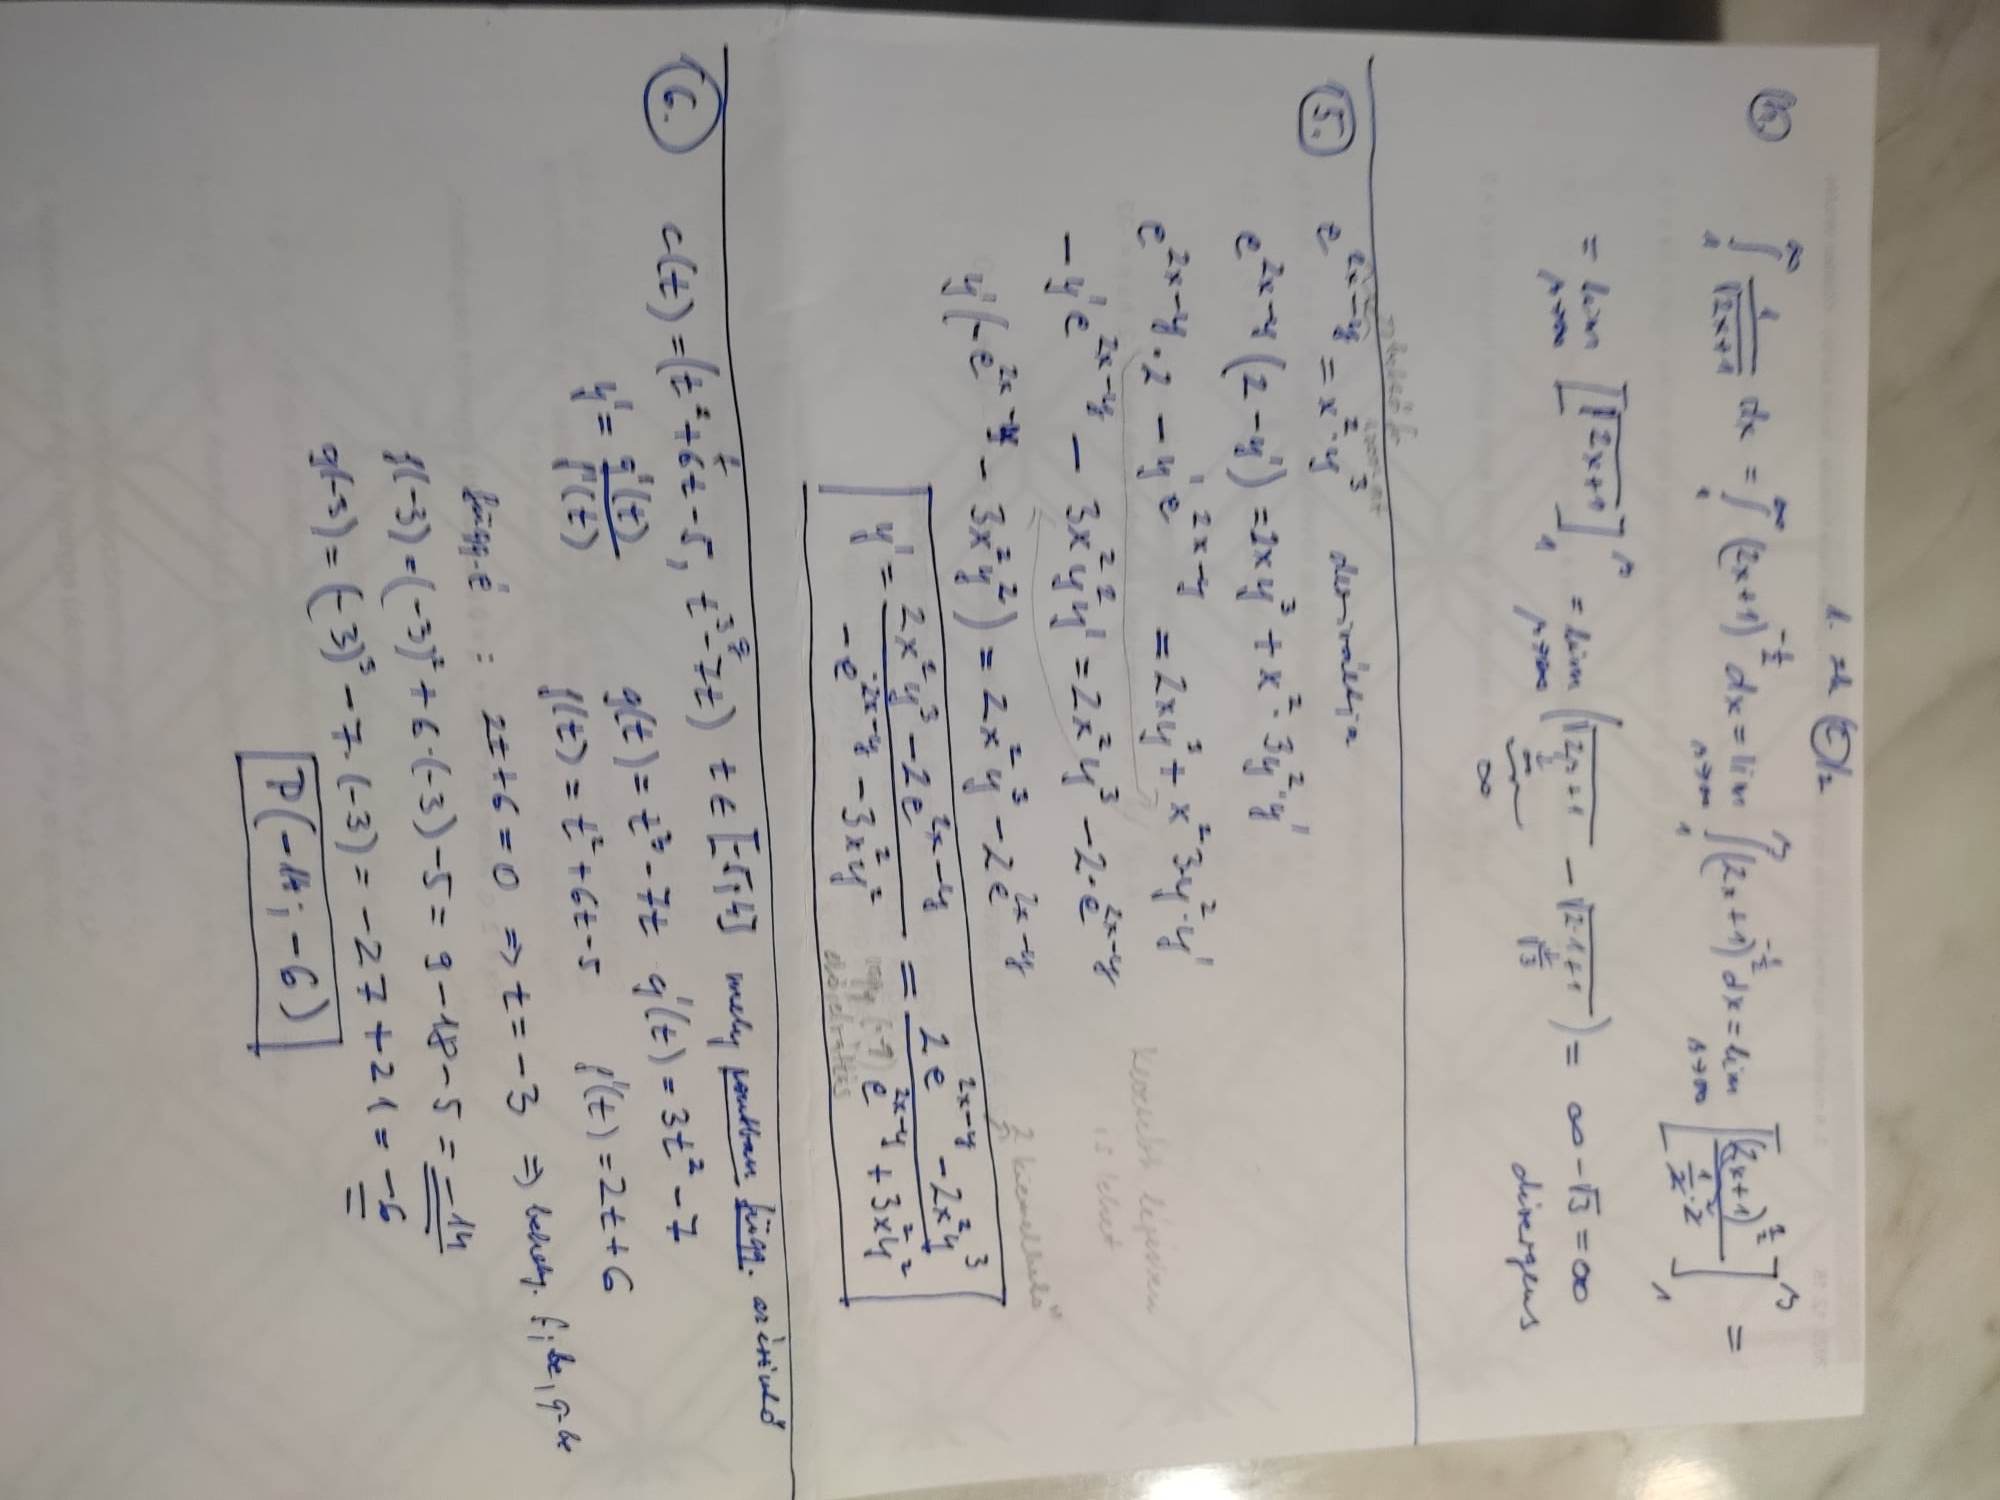 1. zh (2)/2
4. ∫₁^∞ 1/√(2x+1) dx = ∫₁^∞ (2x+1)^(-1/2) dx = lim_(β→∞) ∫₁^β (2x+1)^(-1/2) dx = lim_(β→∞) [(2x+1)^(1/2) / (1/2 · 2)]₁^β =
= lim_(β→∞) [√(2x+1)]₁^β = lim_(β→∞) (√(2β+1) − √(2·1+1)) = ∞ − √3 = ∞
∞ √3 divergens
∞
5. e^(2x−y) = x² · y³ deriváltja
e^(2x−y) (2 − y') = 2xy³ + x² · 3y² · y'
e^(2x−y) · 2 − y' e^(2x−y) = 2xy³ + x² 3y² · y'
kevesebb lépésben
is lehet
− y' e^(2x−y) − 3x²y²y' = 2x²y³ − 2 · e^(2x−y)
2 kiemelhető
y' (−e^(2x−y) − 3x²y²) = 2x²y³ − 2e^(2x−y)
y' = (2x²y³ − 2e^(2x−y)) / (−e^(2x−y) − 3x²y²) = (2e^(2x−y) − 2x²y³) / (e^(2x−y) + 3x²y²)
vagy (−1)
előjelváltás
6. c(t) = (t² + 6t − 5, t³ − 7t) t ∈ [−5; 4] mely pontban függ. az érintő
f g
y' = g'(t) / f'(t) g(t) = t³ − 7t g'(t) = 3t² − 7
f(t) = t² + 6t − 5 f'(t) = 2t + 6
függ. é : 2t + 6 = 0 ⇒ t = −3 ⇒ behely. f-be, g-be
f(−3) = (−3)² + 6 · (−3) − 5 = 9 − 18 − 5 = −14
g(−3) = (−3)³ − 7 · (−3) = −27 + 21 = −6
P(−14; −6)